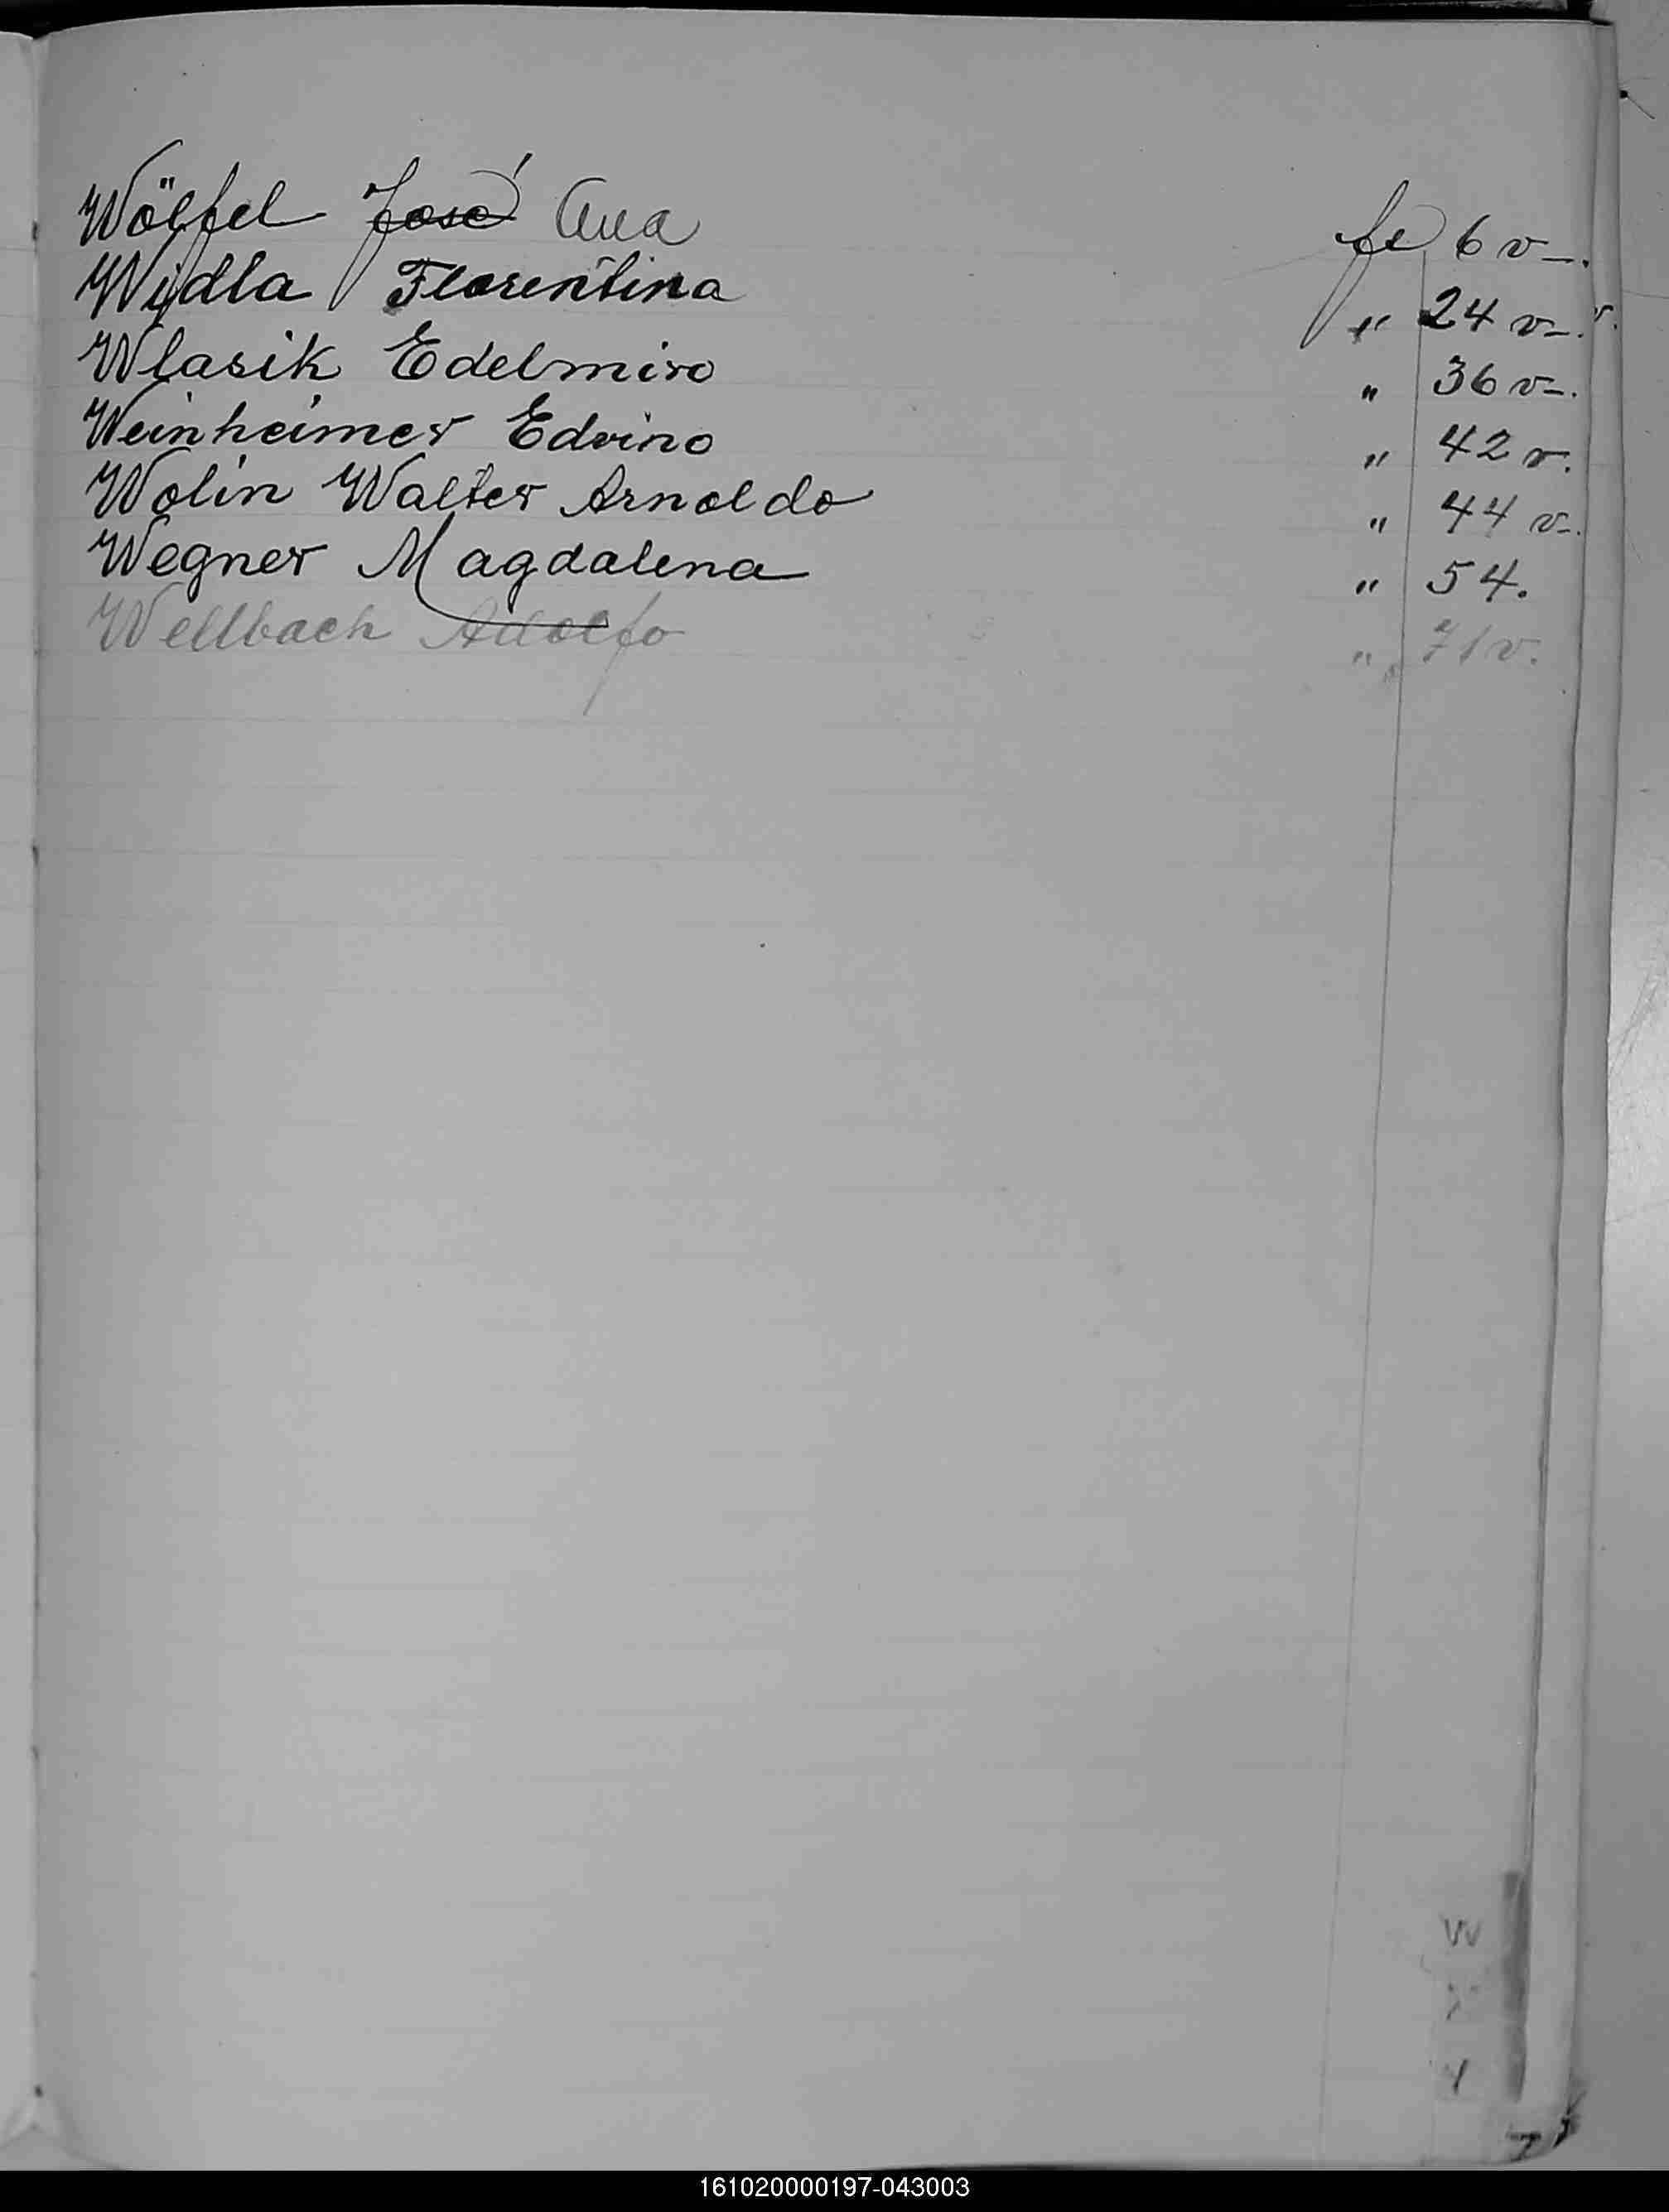 Wölfel José Ana fe 6 v-.
Wijdla Florentina " 24 v-.
Wlasik Edelmiro " 36 v-.
Weinheimer Edvino " 42 v.
Wolin Walter Arnoldo " 44 v-.
Wegner Magdalena " 54.
Wellbach Adolfo " 71v.
W
X
Y
Z
161020000197-043003